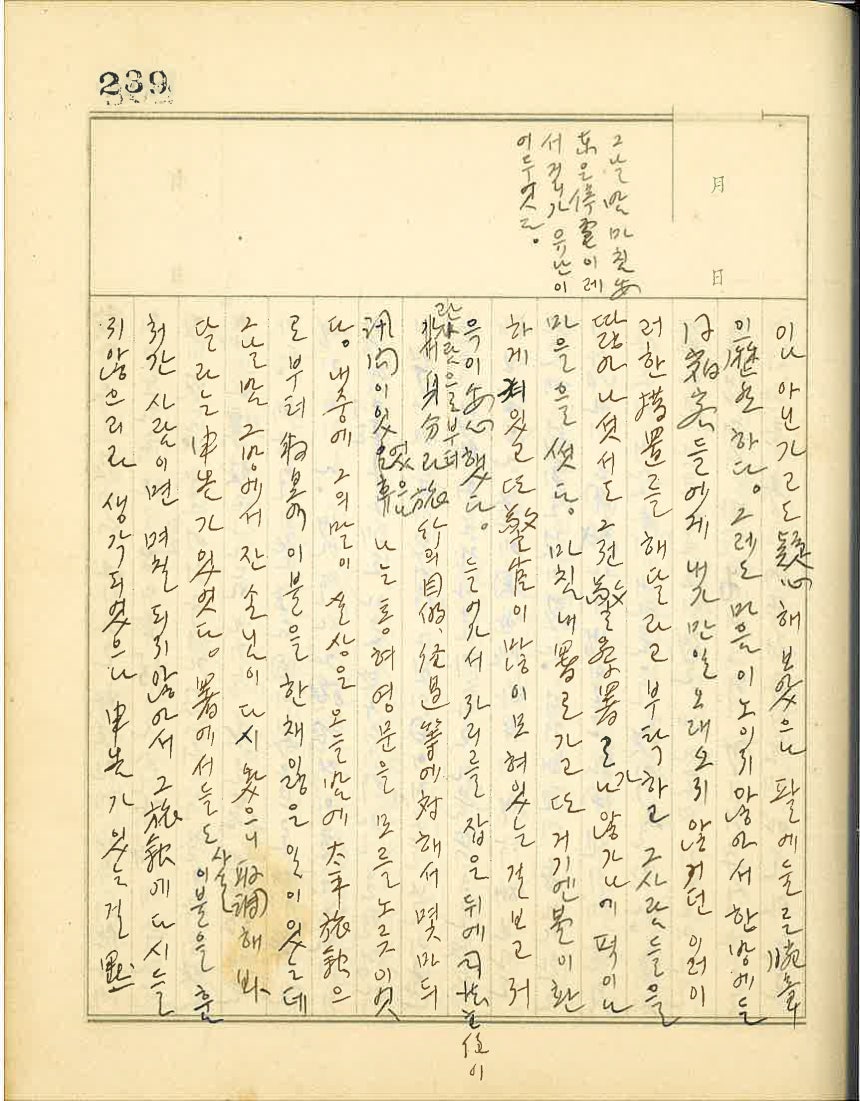 239
月
日
그날 밤 마침 安
東은 停電이레
서 거리가 유난이
어두엇다。
이나 아닌가고도 疑心해 보았으나 팔에 둘른 腕章
이 歷然하다。 그레도 마음이 노이지 않아서 한방에 든
同宿客들에게 내가 만일 오래 오지 않거던 이러이
러한 措置를 해달라고 부탁하고 그사람들을
따라 나섯서도 그전 警察署로나 가 않가나에 퍽이나
마음을 썻다。 마침내 署로 가고 또 거기엔 불이 환
하게 켜 있고 또 警官이 많이 모혀있는 걸 보고 저
윽이 安心했다。 들어가서 자리를 잡은 뒤에 司法主任이
란 사람으로부터
身分과 旅行의 目的, 經過 等에 対해서 몇 마듸
訊問이 있었은 後 나는 통혀 영문을 모를 노릇이엇
다。 내중에 그의 말이 실상은 오늘 밤에 太平旅館으
로부터 이불을 한채 잃은 일이 있는데
그날 밤 그방에서 잔 손님이 다시 왔으니 取調해 봐
달라는 申告가 있엇다。 署에서들도 사실 이불을 훔
처간 사람이면 몇칠 되지 않아서 그 旅館에 다시 들
지 않으리라 생각되었으나 申告가 있는 걸 默